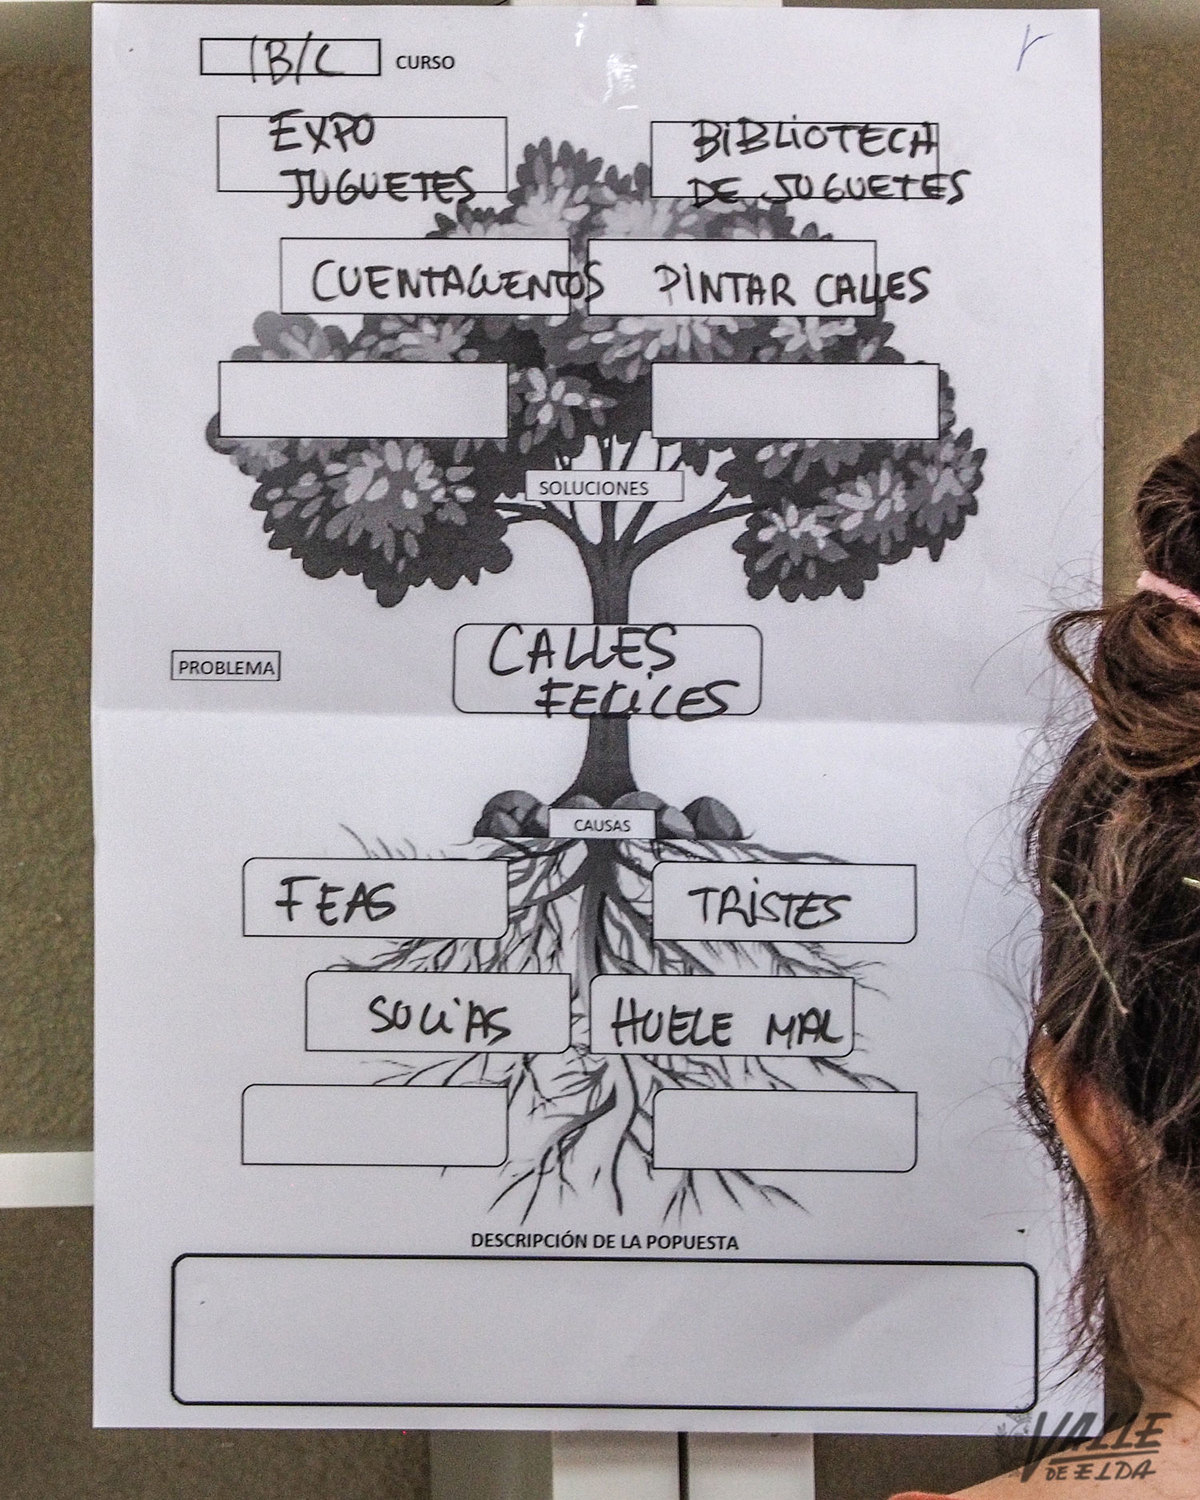 1B/C CURSO
EXPO
JUGUETES
BiBLiOTECA
DE JUGUETES
CUENTACUENTOS
PINTAR CALLES
SOLUCIONES
PROBLEMA
CALLES
FELICES
CAUSAS
FEAS
TRiSTES
SUCiAS
HUELE MAL
DESCRIPCIÓN DE LA POPUESTA
VALLE
DE ELDA